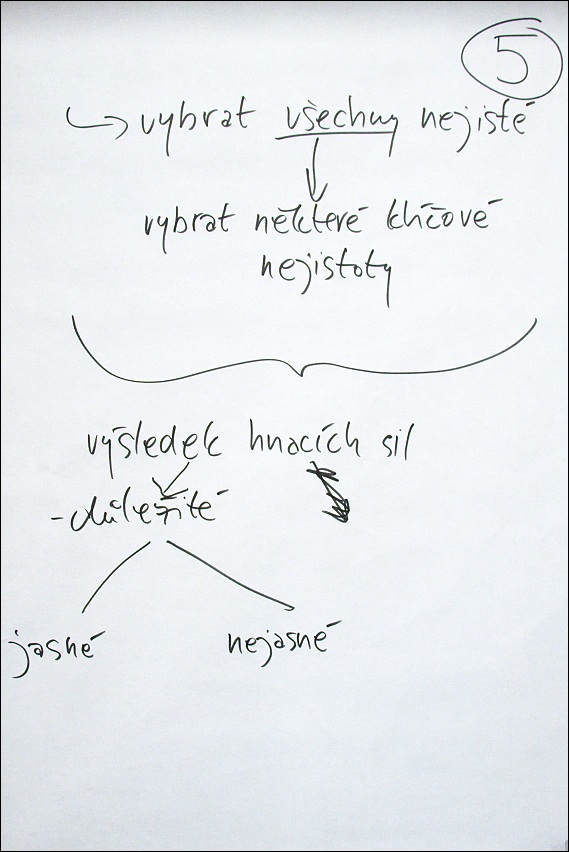 5
↳ vybrat všechny nejisté
vybrat některé klíčové
nejistoty
výsledek hnacích sil
- důležité
jasné nejasné